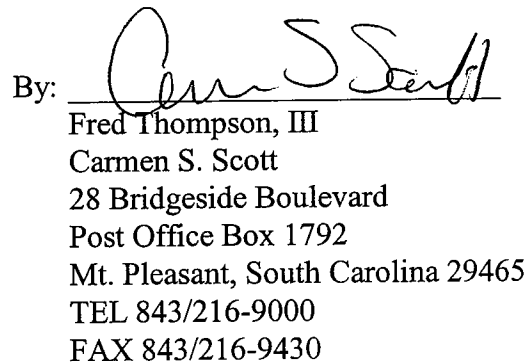 By: Carmen S Scott
Fred Thompson, III
Carmen S. Scott
28 Bridgeside Boulevard
Post Office Box 1792
Mt. Pleasant, South Carolina 29465
TEL 843/216-9000
FAX 843/216-9430